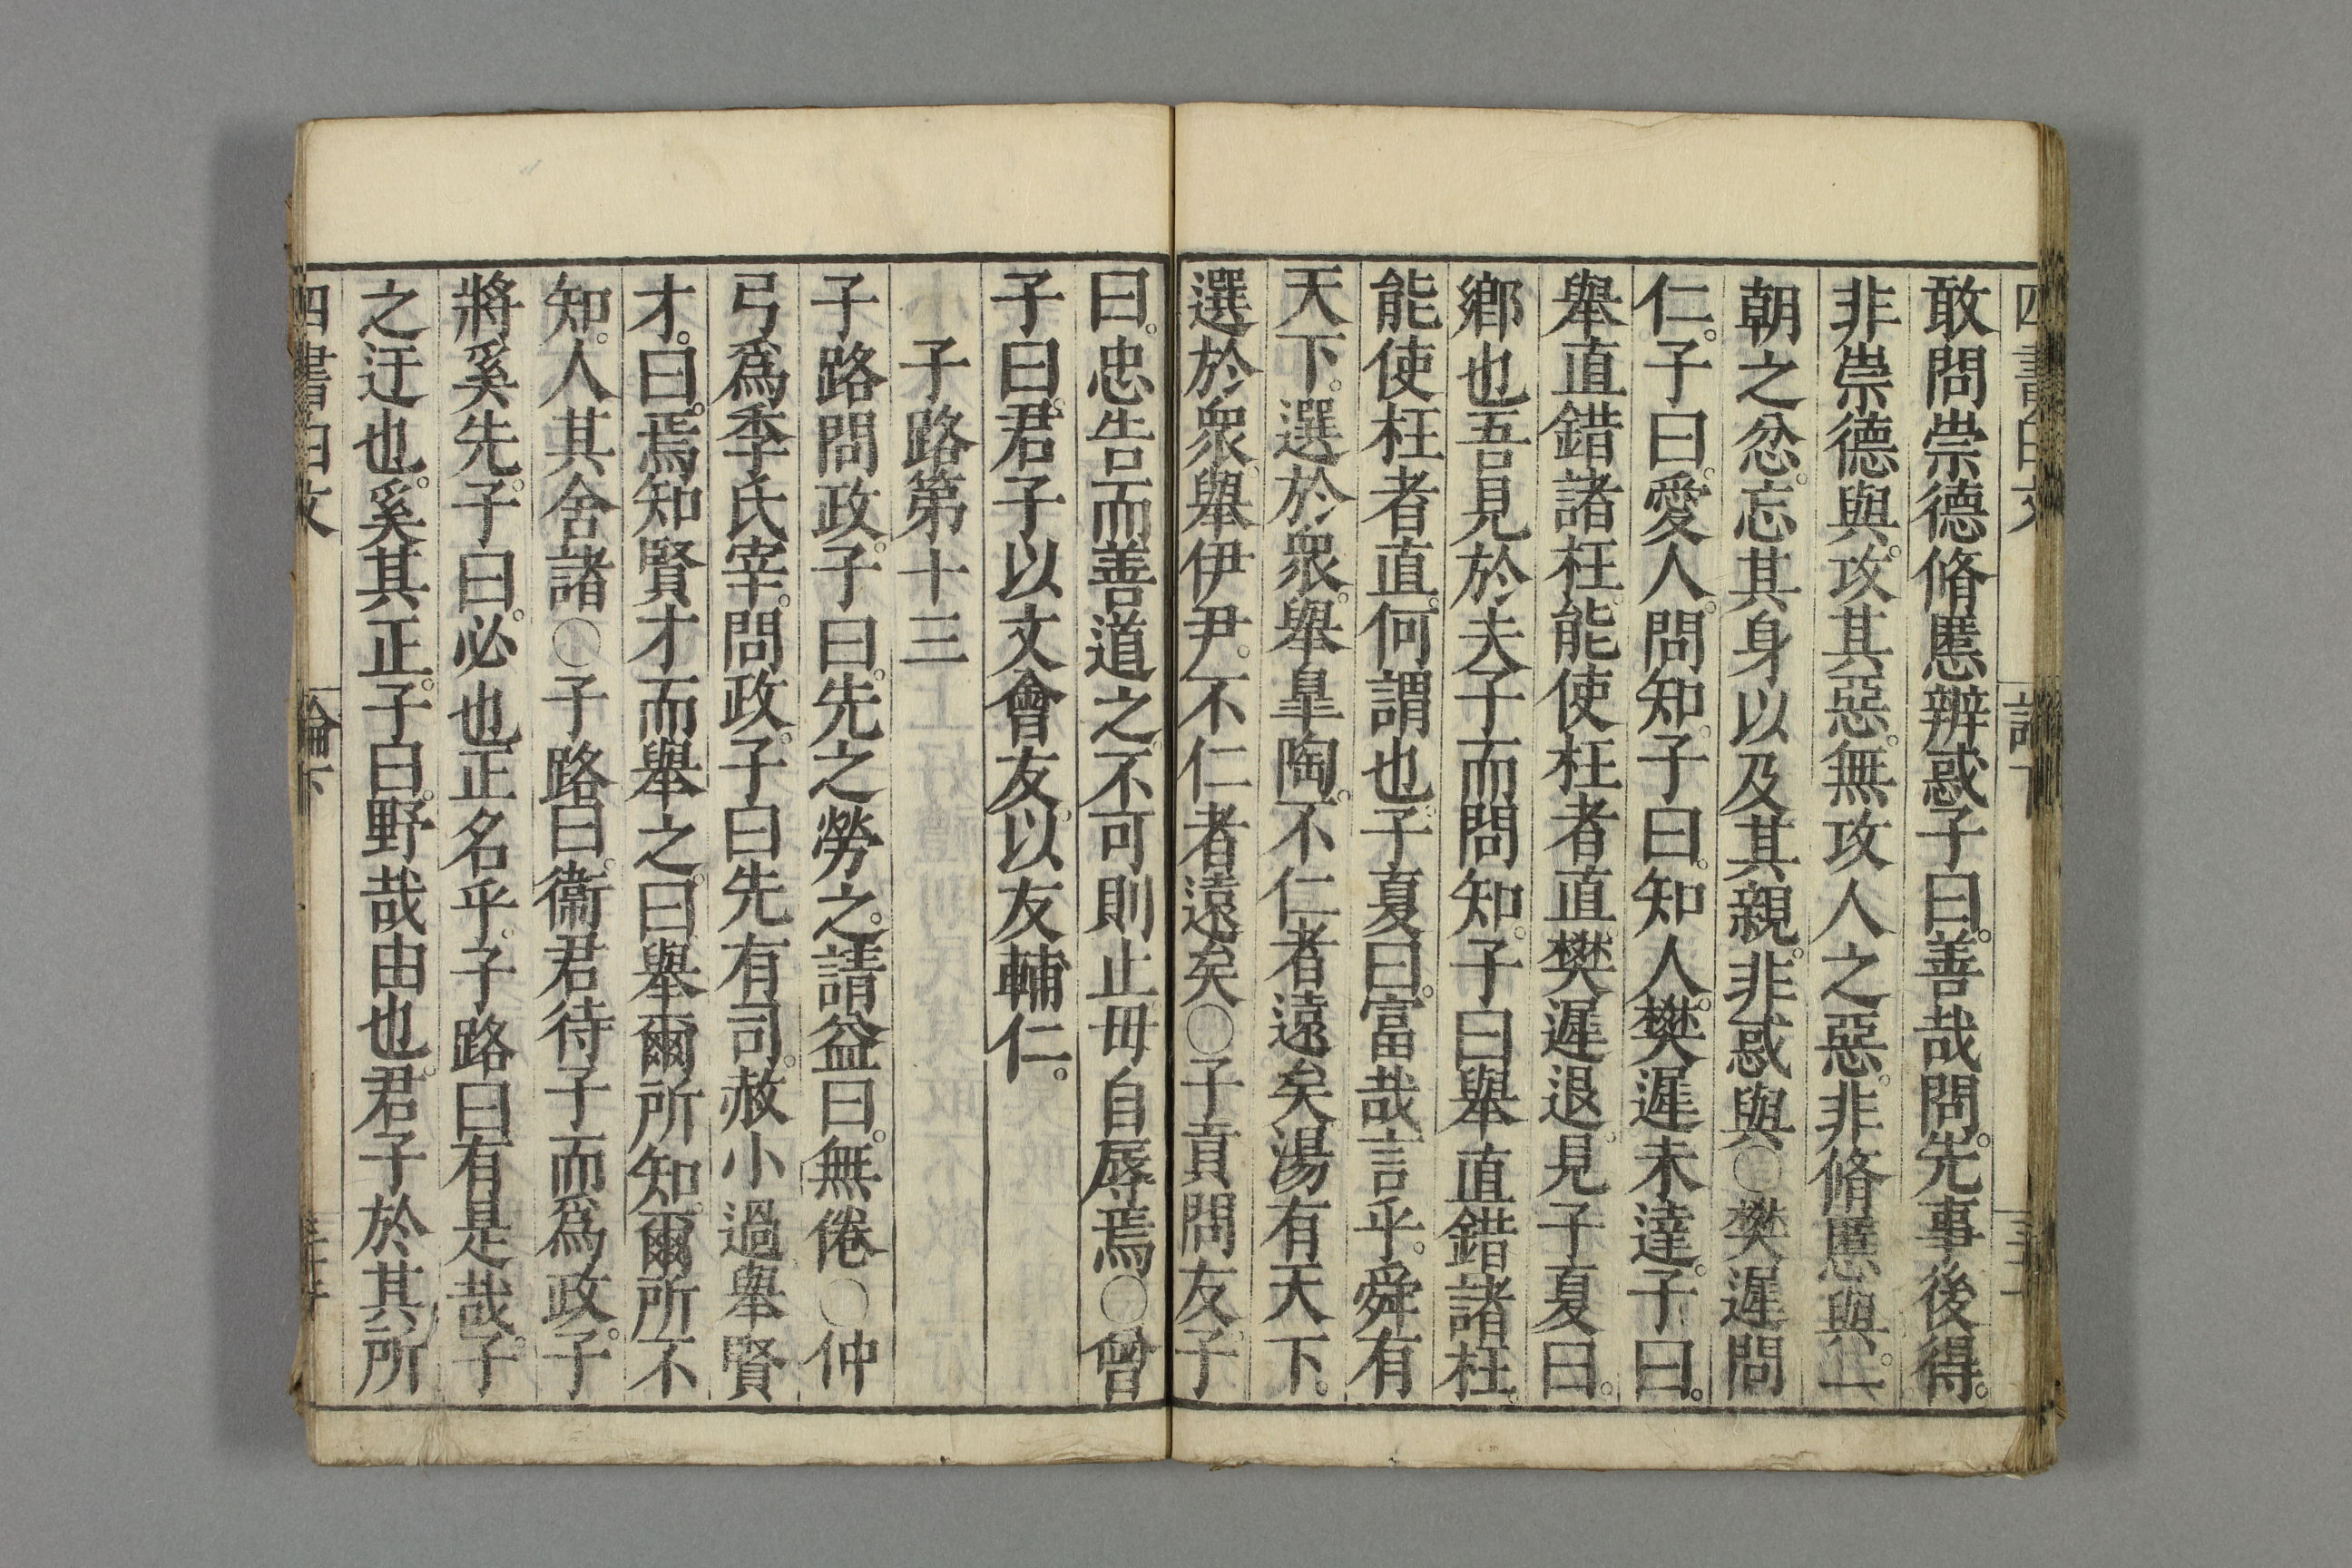 敢問崇德脩慝辨惑子曰。善哉問。先事後得。
非崇德與。攻其惡。無攻人之惡。非脩慝與。一
朝之忿。忘其身以及其親。非惑與○樊遲問
仁。子曰。愛人。問知。子曰。知人。樊遲未達。子曰。
舉直錯諸枉。能使枉者直樊遲退。見子夏曰。
鄉也吾見於夫子而問知。子曰舉直錯諸枉。
能使枉者直。何謂也。子夏曰。富哉言乎。舜有
天下。選於衆。舉皐陶。不仁者遠矣湯有天下。
選於衆。舉伊尹。不仁者遠矣○子貢問友。子
曰。忠告而善道之。不可則止毋自辱焉○曾
子曰。君子以文會友。以友輔仁。
子路第十三
子路問政。子曰。先之勞之。請益曰。無倦○仲
弓爲季氏宰。問政。子曰先有司。赦小過舉賢
才。曰。焉知賢才而舉之。曰舉爾所知。爾所不
知。人其舍諸○子路曰。衞君待子而爲政。子
將奚先。子曰。必也正名乎。子路曰有是哉。子
之迂也。奚其正。子曰。野哉由也。君子於其所
四書白文 論下